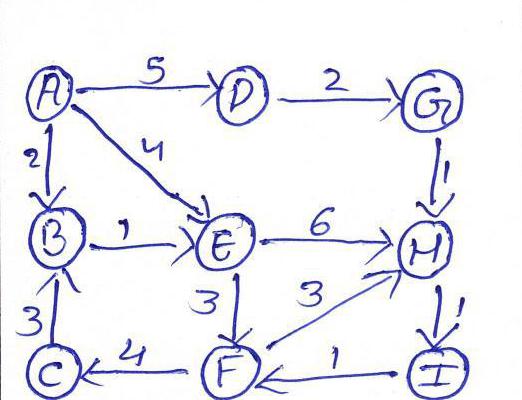 A 5 D 2 G
2 4 1
B 1 E 6 H
3 3 3 1
C 4 F 1 I